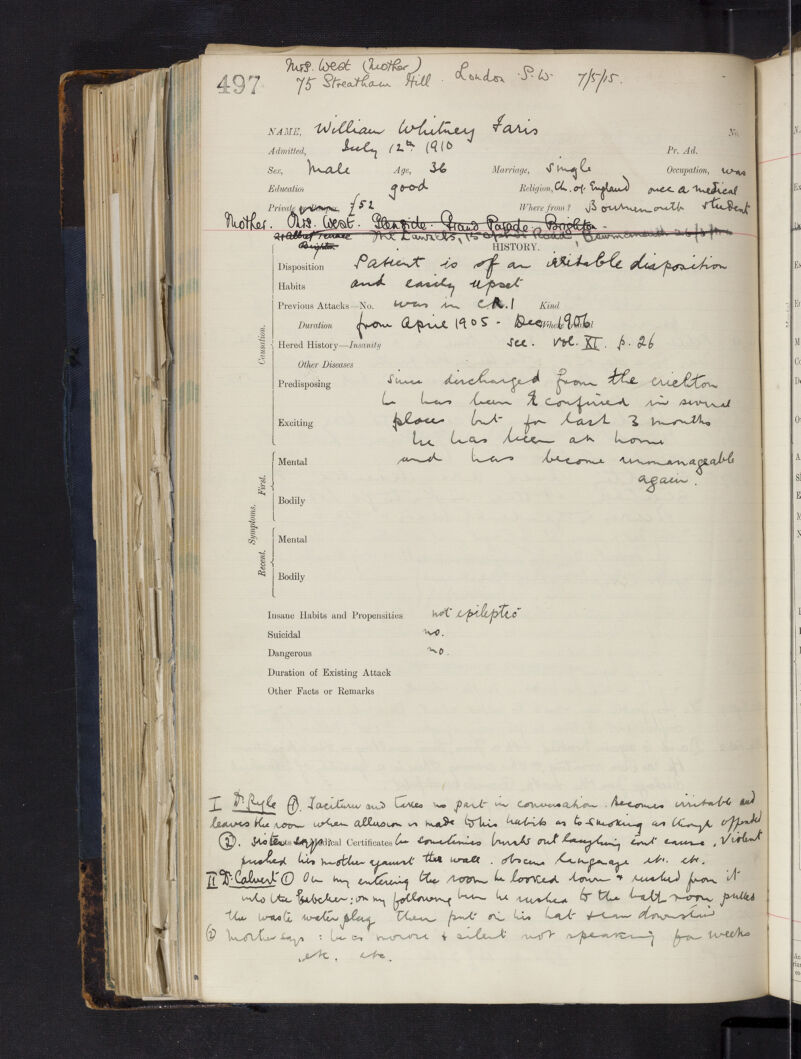 Mrs. West (Mother)
497. 75 Streatham Hill. London S.W. 7/5/15.
NAME, William Whitney Faris No.
Admitted, July 12th 1910 Pr. Ad.
Sex, Male Age, 36 Marriage, Single Occupation, was
Education good Religion, Ch. of England once a medical
Private £52 Where from? Bournemouth student
Mother. Mrs. West. Glenside. Grand Parade. Brighton.
The Lawns, Road, Bournemouth
Brighton
HISTORY.
Causation.
Disposition Patient is of an irritable disposition
Habits and easily upset
Previous Attacks—No. was in C.R.I Kind
Duration from April 1905 - Dec 1906
Hered History—Insanity see. vol. XI. p. 26
Other Diseases
Predisposing since discharged from the crichton
he has been confined in several
Exciting places but for last 3 months
he has been at home
Symptoms. First.
Mental and has become unmanageable
again.
Bodily
Recent.
Mental
Bodily
Insane Habits and Propensities not epileptic
Suicidal no.
Dangerous no.
Duration of Existing Attack
Other Facts or Remarks
I Dr. Ryle ①. Taciturn and takes no part in conversation. becomes irritable and
leaves the room when allusion is made to his habits as to smoking as though offended
②. Sister says: Medical Certificates he sometimes bursts out laughing without cause, Violent
pushed his mother against the wall. obscene language etc. etc.
II Dr Calvert ① On my entering the room he looked round & rushed from it
into the kitchen; on my following him he rushed to the bath room pulled
the waste water plug then put on his hat & ran downstairs
② Mother says: he is morose & silent not speaking for weeks
etc. etc.